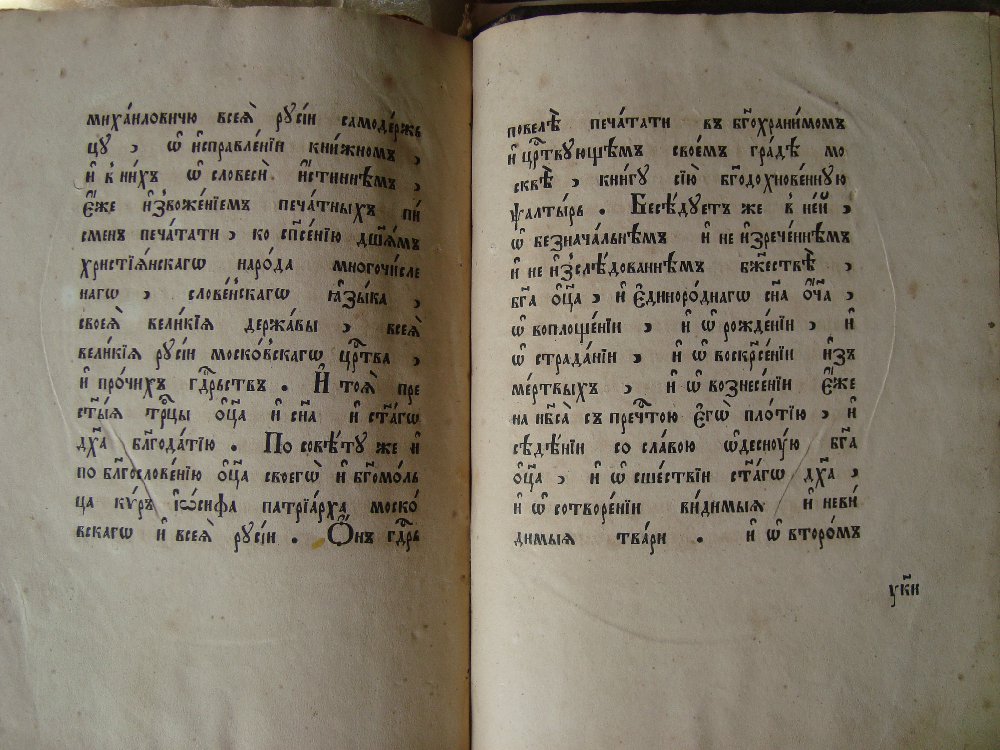 миха́иловичю всеѧ̀ рꙋсі́и самоде́ржь
цꙋ , ѡ҆ и҆справле́нїи кни́жном ,
и҆ в ни́хъ ѡ҆ словесѝ и҆́стиннѣм ,
є҆́же и҆зѡбраже́нїем печа́тныхъ пи́
сменъ печа́тати , ко спⷭ҇е́нїю дш҃а́мъ
христїѧ́нскагѡ наро́да многочи́сле
нагѡ , слове́нскагѡ ꙗ҆зы́ка ,
своеѧ̀ вели́кїѧ держа́вы , всеѧ̀
вели́кїѧ рꙋсі́и моско́вскагѡ црⷭ҇тва ,
и҆ про́чихъ гдⷭ҇рьствъ . И҆ тоѧ̀ пре
ст҃ы́ѧ трⷪ҇цы ѻ҆ц҃а̀ и҆ сн҃а и҆ ст҃а́гѡ
дх҃а бл҃года́тїю . По совѣ́тꙋ же и҆
по бл҃гослове́нїю ѻ҆ц҃а̀ своегѡ̀ и҆ бг҃омо́ль
ца кѵ́ръ і҆ѡ́сифа патрїа́рха моско́
вскагѡ и҆ всеѧ̀ рꙋсі́и . Ѻ҆́нъ гдⷭ҇рь
повелѣ̀ печа́тати въ бг҃охрани́мом
и҆ црⷭ҇твꙋющѣмъ своем гра́дѣ мо
сквѣ̀ , кни́гꙋ сїю̀ бг҃одохнове́ннꙋю
ѱалты́рь . Бесѣ́дꙋетъ же в не́й ,
ѡ҆ безнача́льнѣмъ и҆ не и҆зрече́ннѣмъ
и҆ не и҆зслѣ́дованнѣмъ бжⷭ҇ествѣ̀ ,
бг҃а ѻ҆ц҃а̀ , и҆ є҆диноро́днагѡ сн҃а ѻ҆́ч҃а ,
ѡ҆ воплоще́нїи , и҆ ѡ҆ рожде́нїи , и҆
ѡ҆ страда́нїи , и҆ ѡ҆ воскрⷭ҇е́нїи и҆зъ
ме́ртвыхъ , и҆ ѡ҆ вознесе́нїи є҆́же
на нб҃са̀ съ пречⷭ҇тою є҆гѡ̀ пло́тїю , и҆
сѣде́нїи со сла́вою ѡ҆деснꙋ́ю бг҃а
ѻ҆ц҃а̀ , и҆ ѡ҆ сше́ствїи ст҃а́гѡ дх҃а ,
и҆ ѡ҆ сотворе́нїи ви́димыѧ и҆ неви́
димыѧ тва́ри . и҆ ѡ҆ второ́мъ
ук҃и